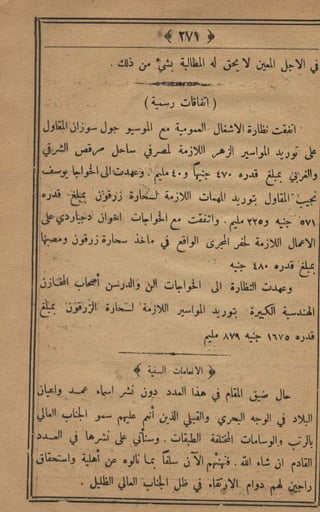 ﴿ ٢٧١ ﴾
في الاجل المعين لا يحق له المطالبة بشيء من ذلك .
( اتفاقات رسمية )
اتفقت نظارة الاشغال العمومية مع الموسيو جول سوزان المقاول
على توريد المواسير الزهر اللازمة لمصرفي ساحل مرقص الشرقي
والغربي بمبلغ قدره ٤٧٠ جنيهاً و٤٠ مليم . وعهدت الى الخواجا يوسف
نجيب المقاول بتوريد المهمات اللازمة لسحارة زرقون بمبلغ قدره
٥٧١ جنيه و٢٢٥ مليم . واتفقت مع الخواجات اخوان دجياردي على
الاعمال اللازمة لحفر المجرى الواقع في مأخذ سحارة زرقون ومصبها
بمبلغ قدره ٤٨٠ جنيه
وعهدت النظارة الى الخواجات الن والدرسن أصحاب المخازن
الهندسية الكبيرة بتوريد المواسير اللازمة لسحارة الزرقون بمبلغ
قدره ١٦٧٥ جنيه ٨٧٩ مليم
﴿ الانعامات السنية ﴾
حال ضيق المقام في هذا العدد دون نشر اسماء عمد واعيان
البلاد في الوجه البحري والقبلي الذين أنعم عليهم سمو الجناب العالي
بالرتب والوسامات المختلفة الطبقات . وسنأتي على نشرها في العدد
القادم ان شاء الله . فنهنئهم الآن سلفاً بما نالوه عن أهلية واستحقاق
راجين لهم دوام الارتقاء في ظل الجناب العالي الظليل .